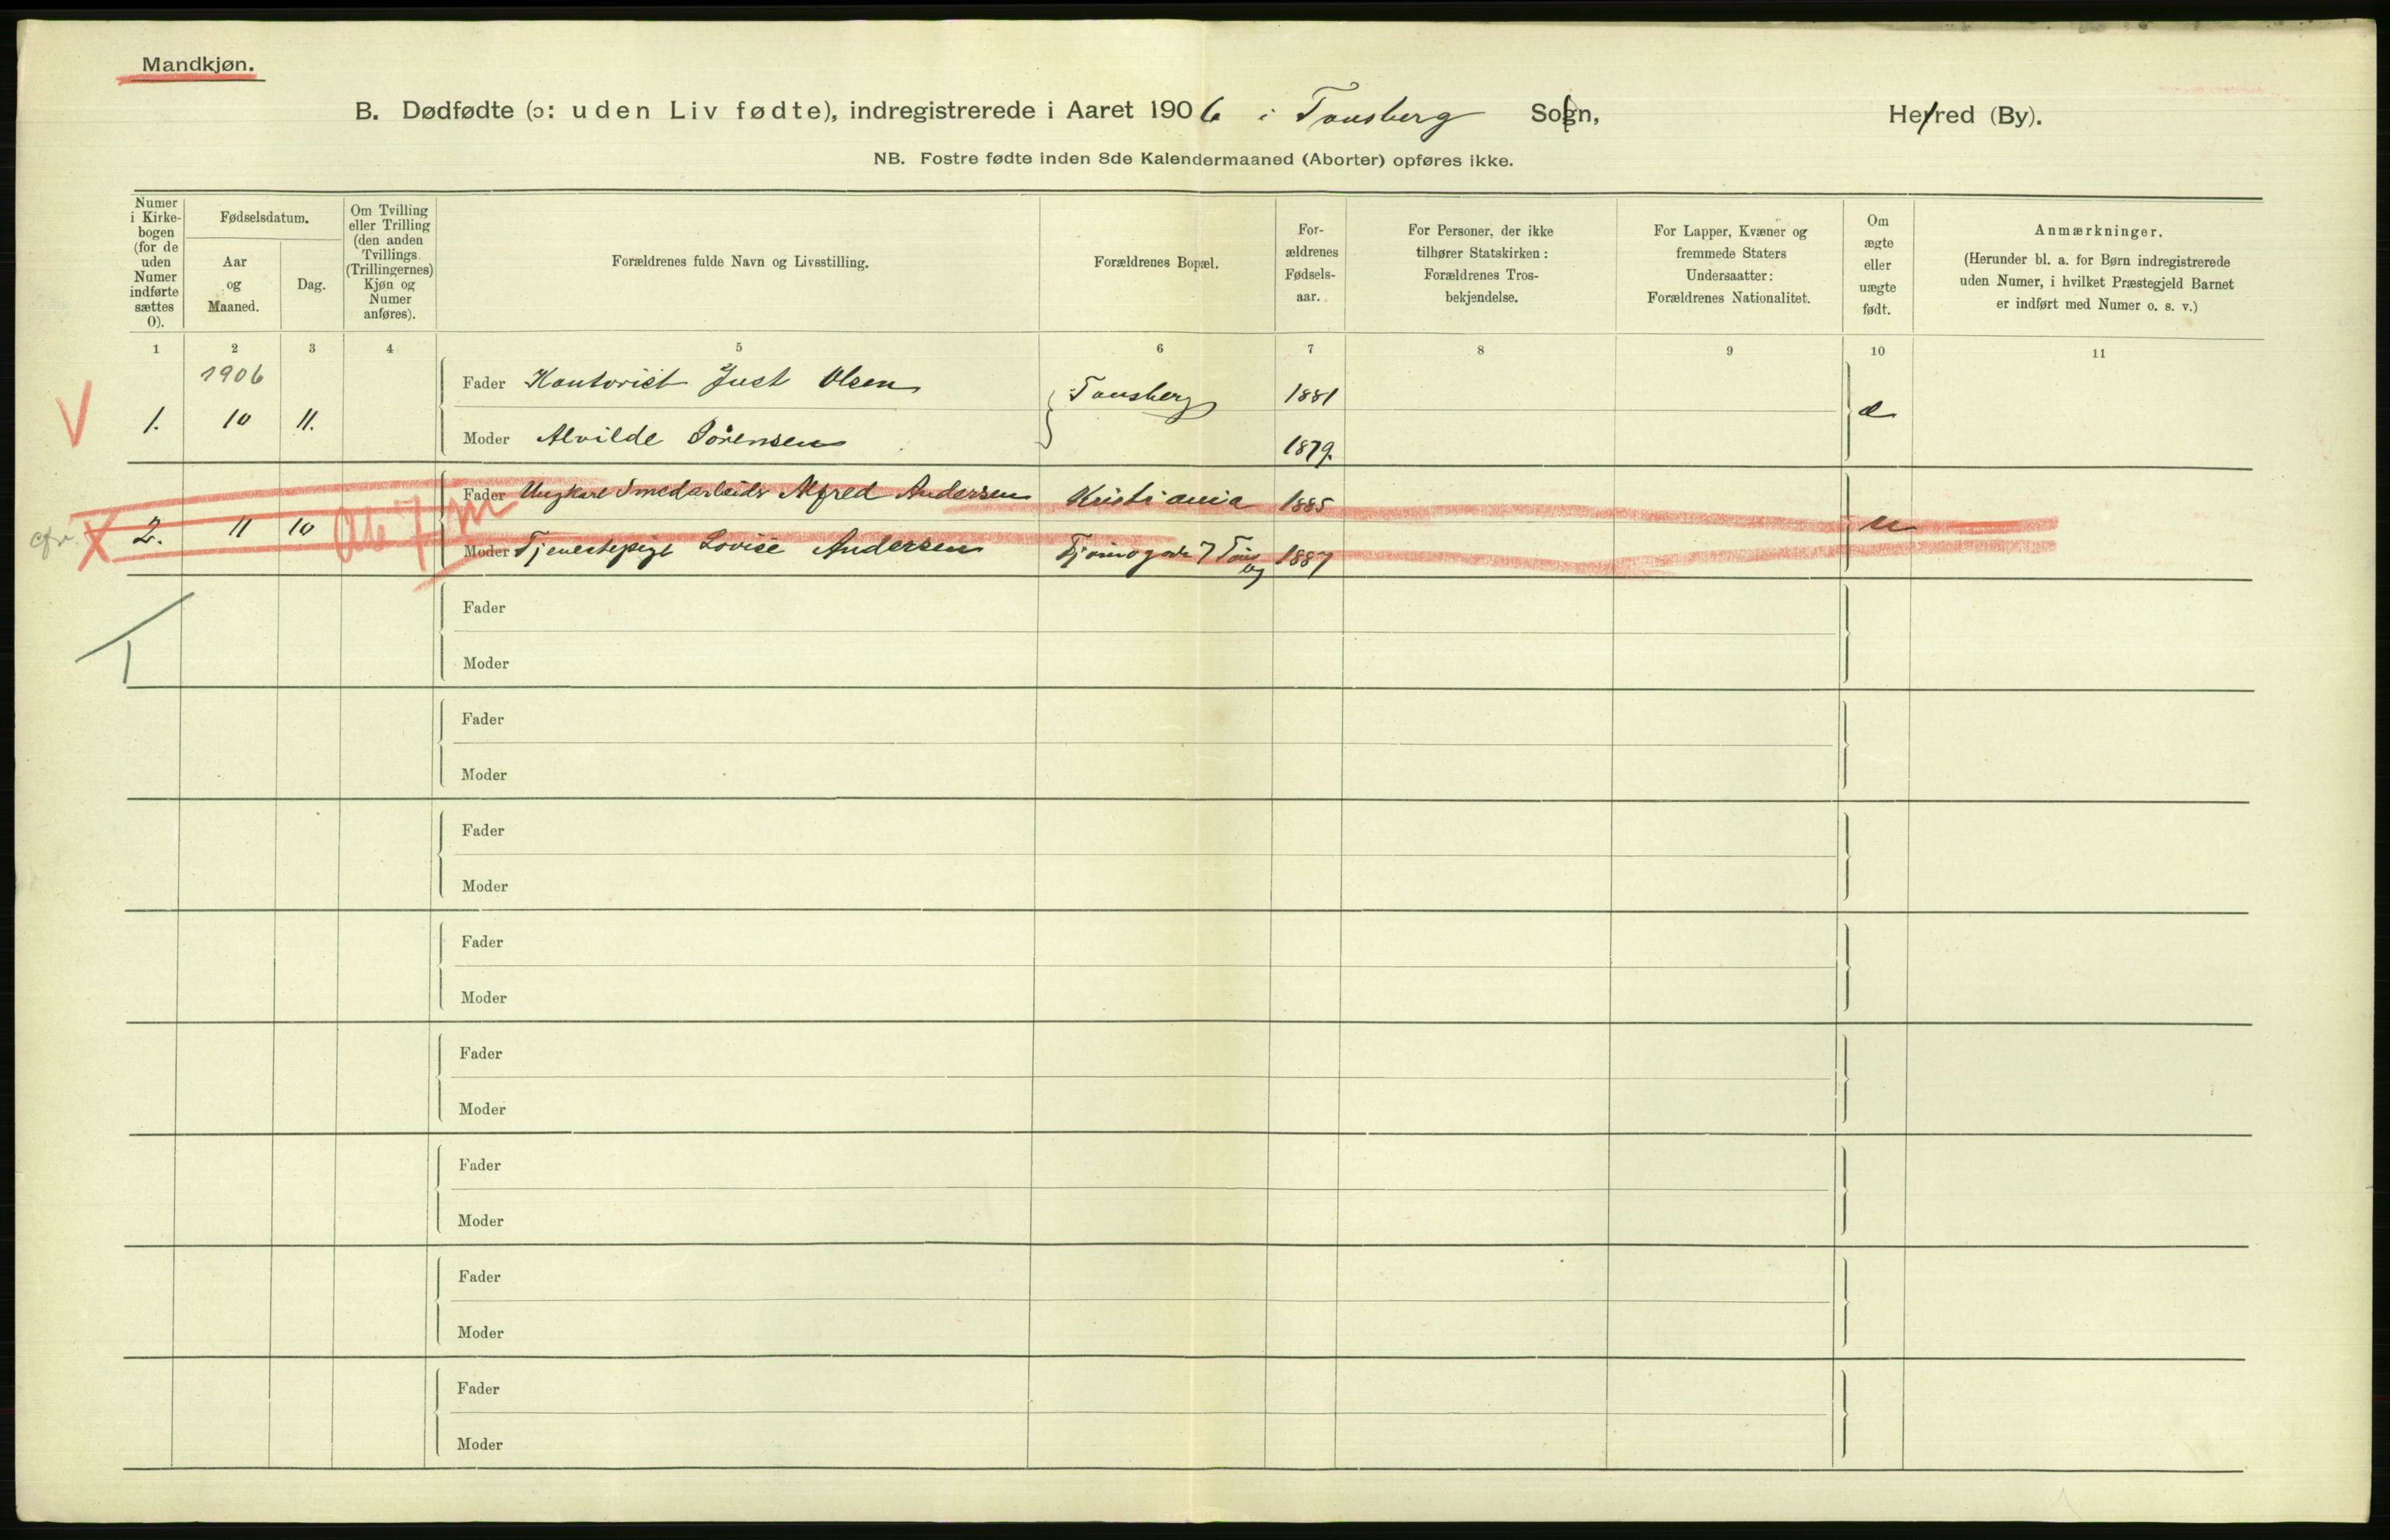 Mandkjøn.
B. Dødfødte (ɔ: uden Liv fødte), indregistrerede i Aaret 1906 i Tønsberg Sogn, Herred (By).
NB. Fostre fødte inden 8de Kalendermaaned (Aborter) opføres ikke.
Numer i Kirke-bogen (for de uden Numer indførte sættes 0).
Fødselsdatum.
Aar og Maaned.
Dag.
Om Tvilling eller Trilling (den anden Tvillings (Trillingernes) Kjøn og Numer anføres).
Forældrenes fulde Navn og Livsstilling.
Forældrenes Bopæl.
For-ældrenes Fødsels-aar.
For Personer, der ikke tilhører Statskirken: Forældrenes Tros-bekjendelse.
For Lapper, Kvæner og fremmede Staters Undersaatter: Forældrenes Nationalitet.
Om ægte eller uægte født.
Anmærkninger.
(Herunder bl. a. for Børn indregistrerede uden Numer, i hvilket Præstegjeld Barnet er indført med Numer o. s. v.)
1 2 3 4 5 6 7 8 9 10 11
1906
Fader Kontorist Just Olsen Tønsberg 1881
V 1. 10 11. æ
Moder Alvilde Sørensen 1879.
Fader Ungkarl Smedarbeider Alfred Andersen Kristiania 1885
cfr. X 2. 11 10 u
Moder Tjenestepige Lovise Andersen 7 1887
Fader
Moder
Fader
Moder
Fader
Moder
Fader
Moder
Fader
Moder
Fader
Moder
Fader
Moder
Fader
Moder